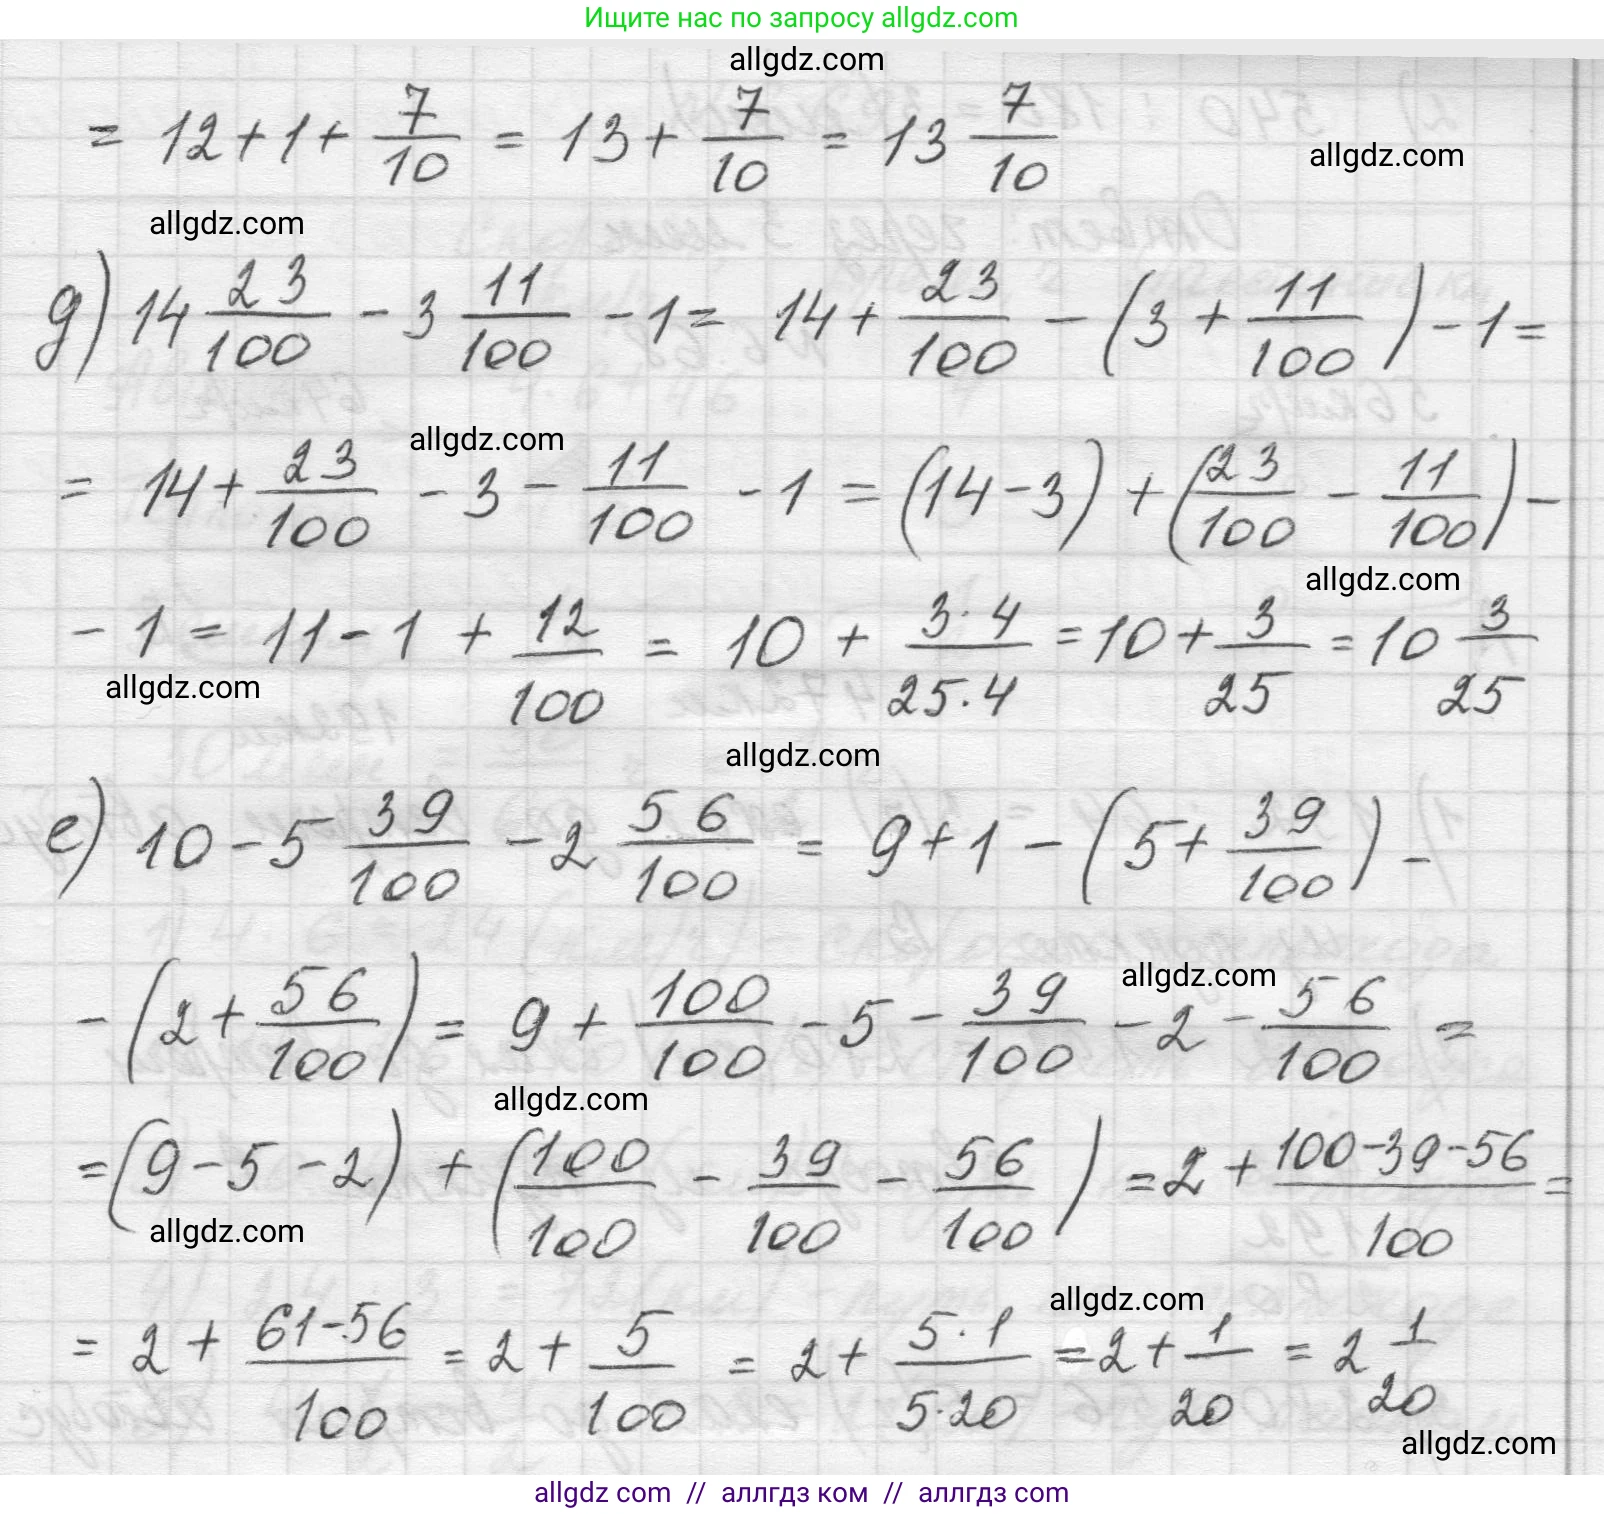 Ищите нас по запросу allgdz.com
allgdz.com
= 12 + 1 + 7/10 = 13 + 7/10 = 13 7/10
allgdz.com
allgdz.com
g) 14 23/100 - 3 11/100 - 1 = 14 + 23/100 - (3 + 11/100) - 1 =
allgdz.com
= 14 + 23/100 - 3 - 11/100 - 1 = (14 - 3) + (23/100 - 11/100) -
allgdz.com
- 1 = 11 - 1 + 12/100 = 10 + 3·4/25·4 = 10 + 3/25 = 10 3/25
allgdz.com
allgdz.com
е) 10 - 5 39/100 - 2 56/100 = 9 + 1 - (5 + 39/100) -
allgdz.com
- (2 + 56/100) = 9 + 100/100 - 5 - 39/100 - 2 - 56/100 =
allgdz.com
= (9 - 5 - 2) + (100/100 - 39/100 - 56/100) = 2 + 100-39-56/100 =
allgdz.com
allgdz.com
= 2 + 61-56/100 = 2 + 5/100 = 2 + 5·1/5·20 = 2 + 1/20 = 2 1/20
allgdz.com
allgdz com // аллгдз ком // аллгдз com